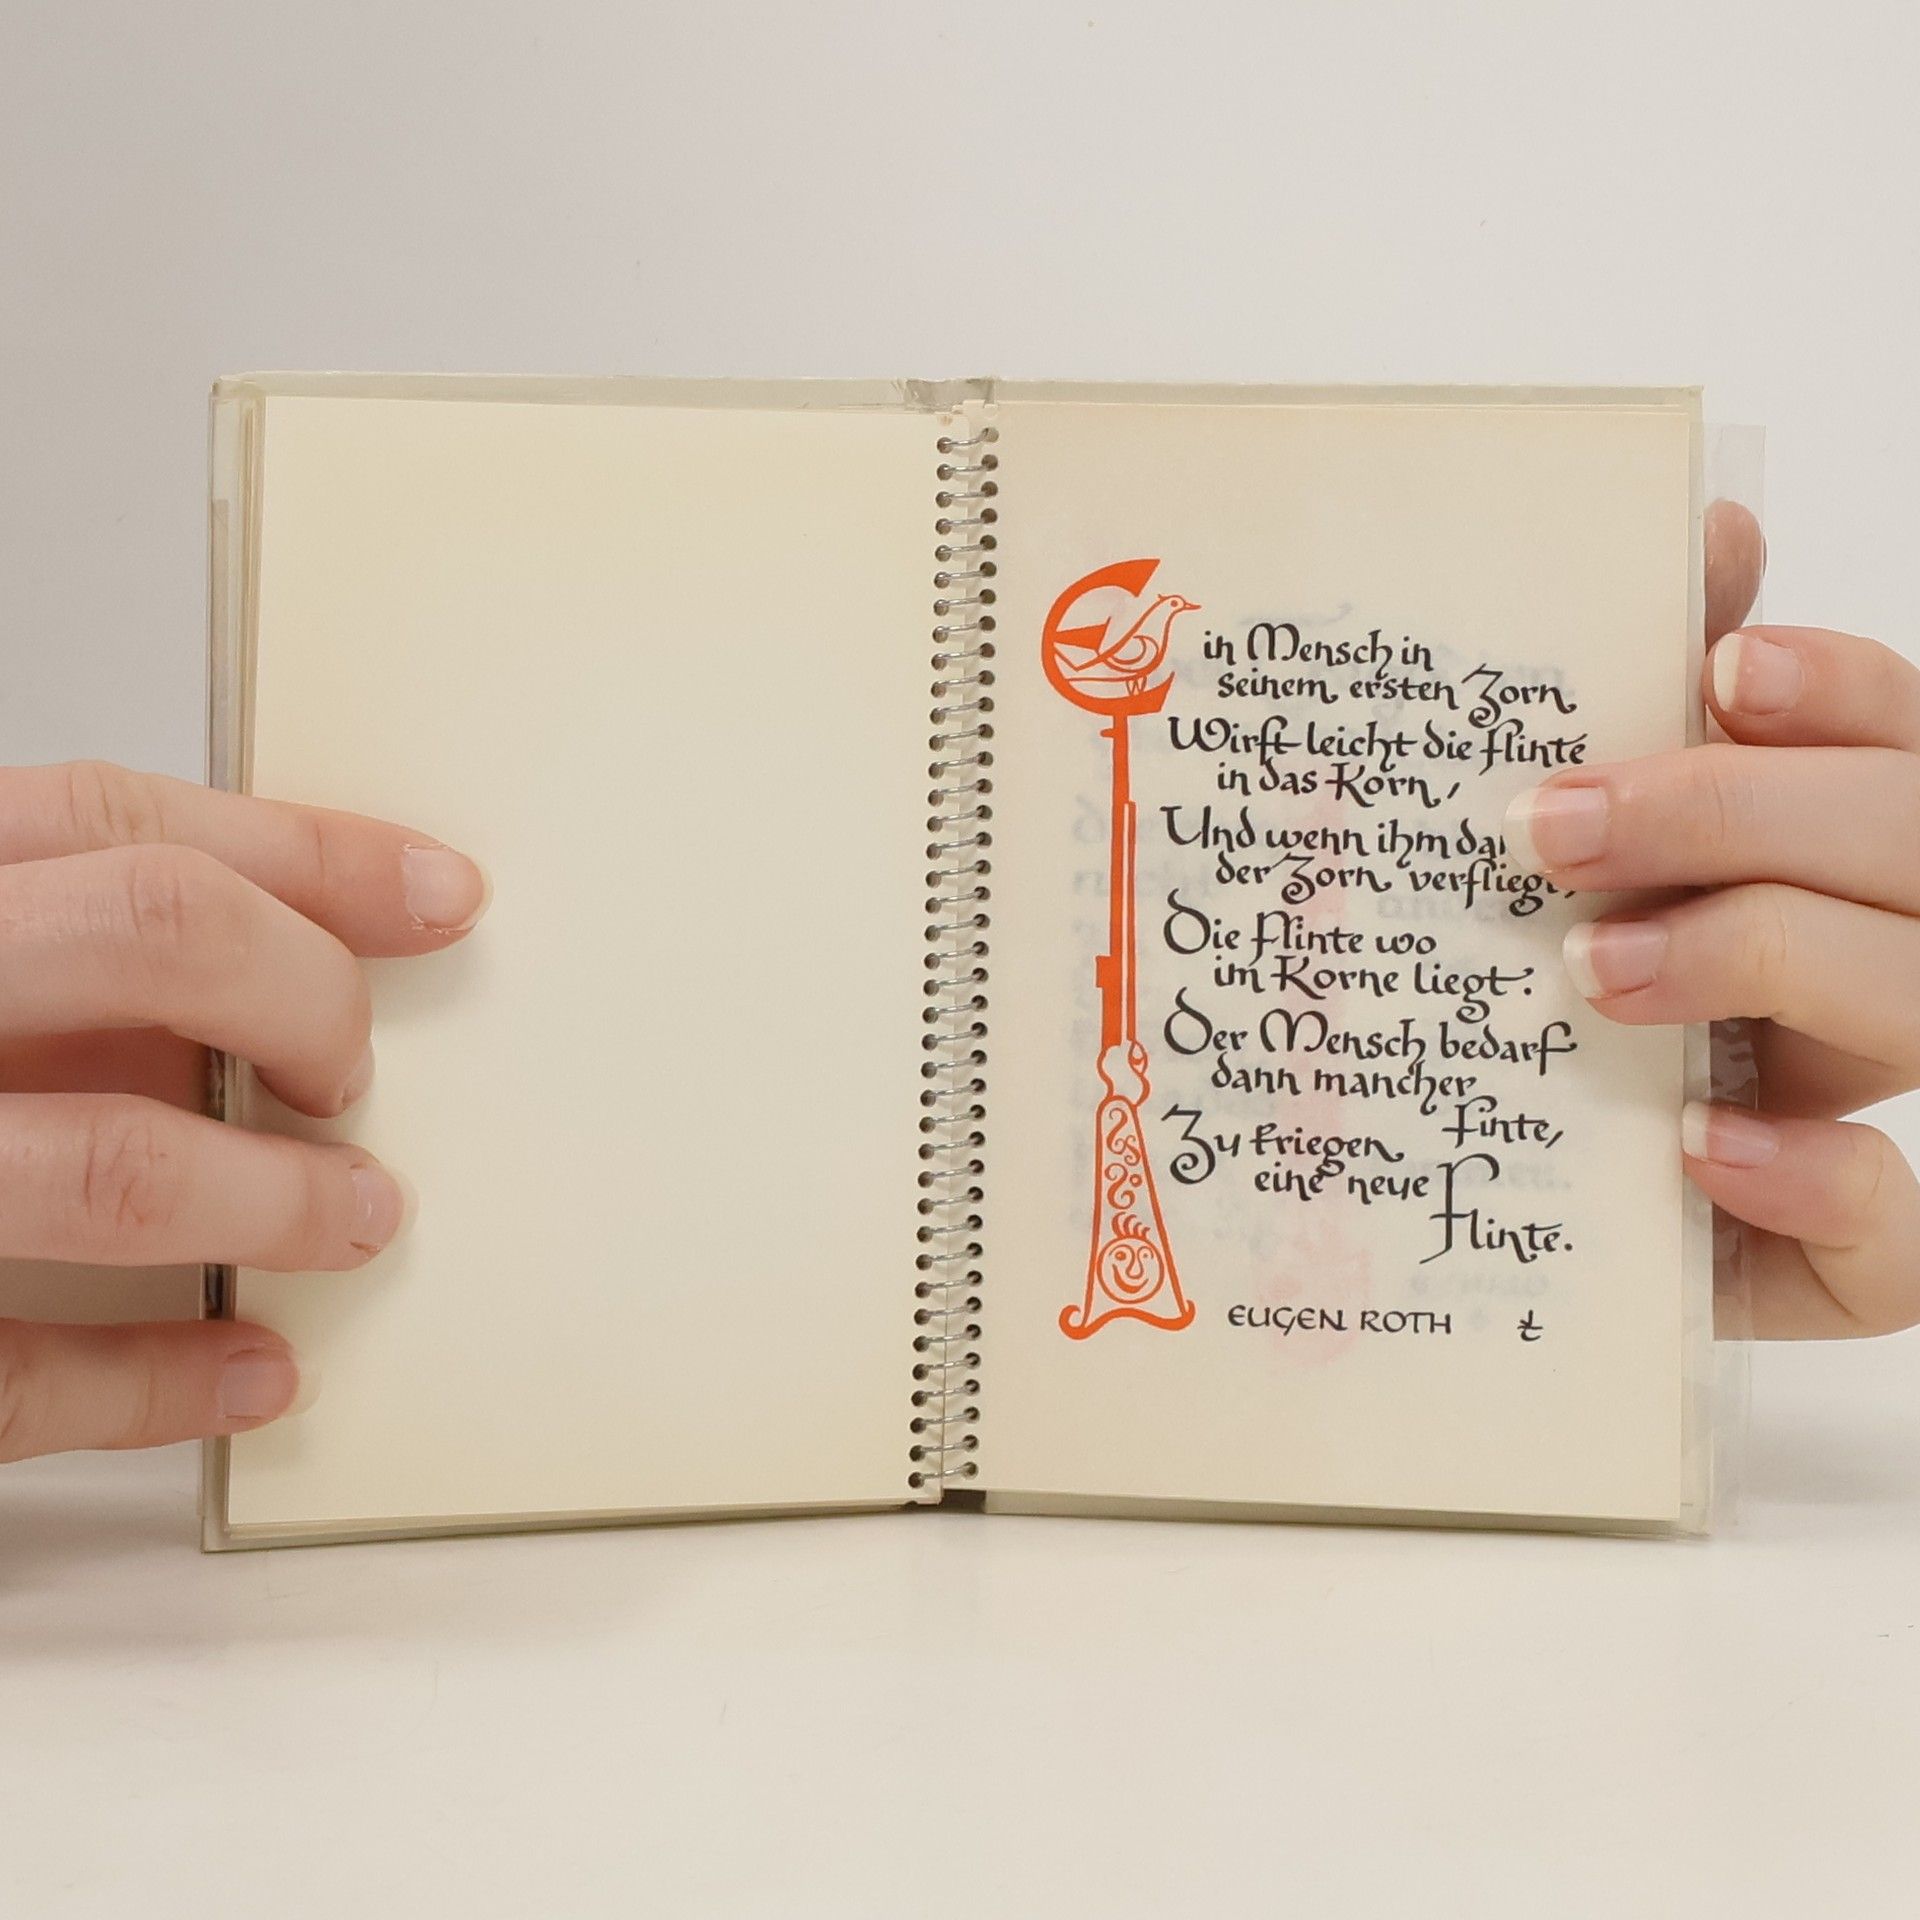 Ein Mensch in
seinem ersten Zorn
Wirft leicht die Flinte
in das Korn,
Und wenn ihm
der Zorn verfliegt,
Die Flinte wo
im Korne liegt:
Der Mensch bedarf
dann mancher
Finte,
Zu kriegen
eine neue
Flinte.
EUGEN ROTH